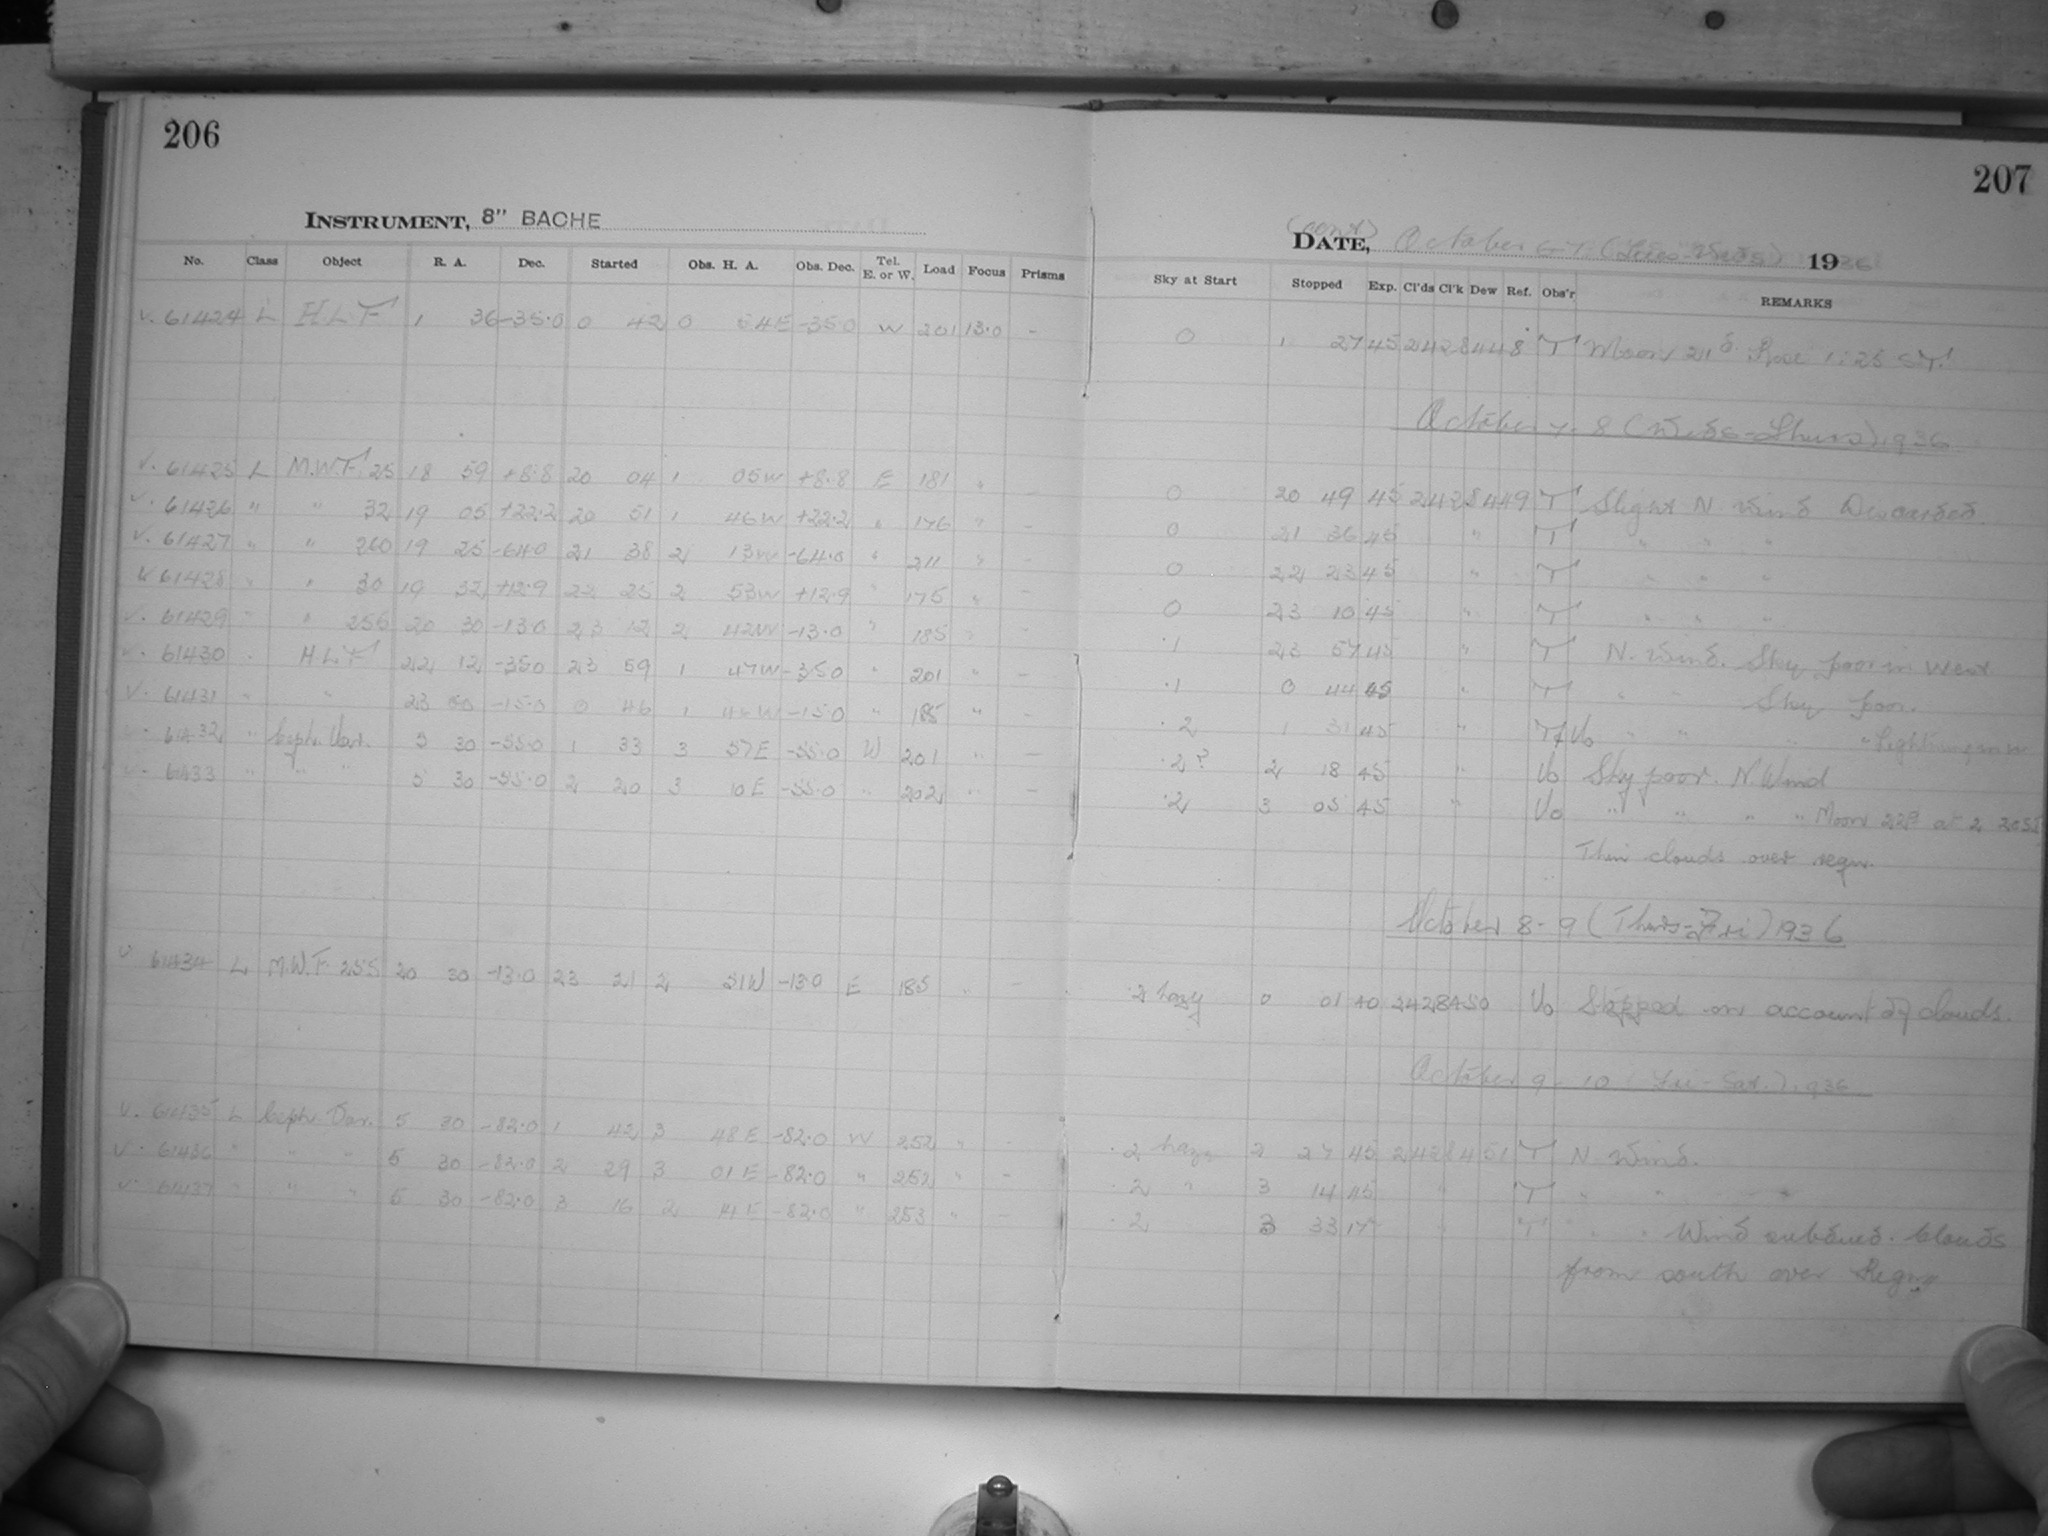 206
207
INSTRUMENT, 8" BACHE
(cont) DATE, October 6-7 (Tues-Weds) 1936
No. Class Object R. A. Dec. Started Obs. H. A. Obs. Dec. Tel. E. or W. Load Focus Prisms Sky at Start Stopped Exp. Cl'ds Cl'k Dew Ref. Obs'r REMARKS
v. 61424 L H.L.F 1 36 -35.0 0 42 0 54E -35.0 W 201 13.0 - 0 1 27 45 2428448 T Moon 21d Rose 1:25 S.T.
October 7-8 (Weds-Thurs) 1936
v. 61425 L M.W.F. 25 18 59 +8.8 20 04 1 05W +8.8 E 181 " - 0 20 49 45 2428449 T Slight N. Wind
v. 61426 " " 32 19 05 +22.2 20 51 1 46W +22.2 " 176 " - 0 21 36 45 " T " " "
v. 61427 " " 260 19 25 -64.0 21 38 2 13W -64.0 " 211 " - 0 22 23 45 " T " " "
v. 61428 " " 30 19 32 +12.9 22 25 2 53W +12.9 " 175 " - 0 23 10 45 " T " " "
v. 61429 " " 255 20 30 -13.0 23 12 2 42W -13.0 " 185 " - .1 23 57 45 " T N. Wind. Sky poor in West
v. 61430 " H.L.F 22 12 -35.0 23 59 1 47W -35.0 " 201 " - .1 0 44 45 " T " " Sky poor.
v. 61431 " " 23 00 -15.0 0 46 1 46W -15.0 " 185 " - .2 1 31 45 " T & Uo " " " "
v. 61432 " Ceph. Var. 5 30 -55.0 1 33 3 57E -55.0 W 201 " - .2? 2 18 45 " Uo Sky poor. N. Wind
v. 61433 " " " 5 30 -55.0 2 20 3 10E -55.0 " 202 " - .2 3 05 45 " Uo " " " " Moon 22d at 2 30
Thin clouds over region.
October 8-9 (Thurs-Fri) 1936
v 61434 L M.W.F. 255 20 30 -13.0 23 21 2 51W -13.0 E 185 " - .2 hazy 0 01 40 2428450 Uo Stopped on account of clouds.
October 9-10 (Fri-Sat.) 1936
v. 61435 L Ceph. Var. 5 30 -82.0 1 42 3 48E -82.0 W 252 " - .2 hazy 2 27 45 2428451 T N. Wind.
v. 61436 " " " 5 30 -82.0 2 29 3 01E -82.0 " 252 " - .2 " 3 14 45 " T " "
v. 61437 " " " 5 30 -82.0 3 16 2 14E -82.0 " 253 " - .2 3 33 17 " T " " Wind subdued. Clouds
from south over Region